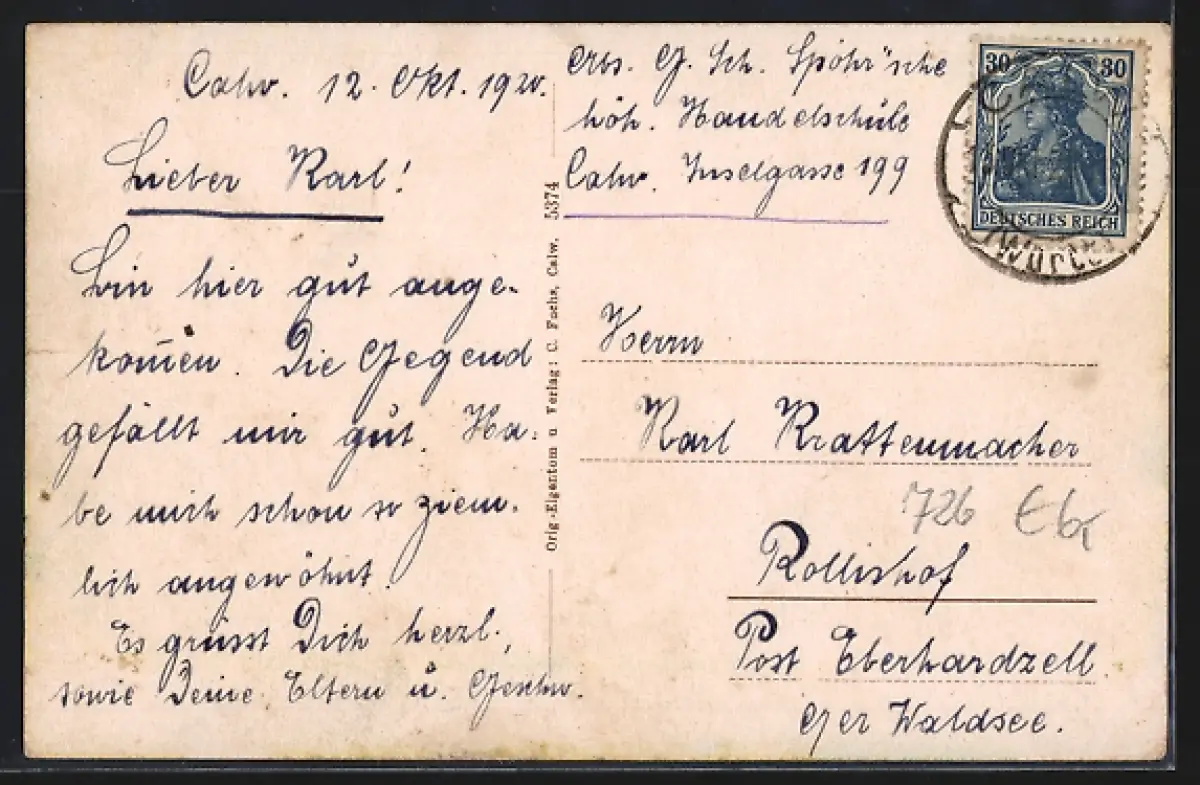 Calw. 12. Okt. 1920.
Lieber Karl!
Bin hier gut ange-
kom̅en. Die Gegend
gefällt mir gut. Ha-
be mich schon so ziem-
lich angewöhnt.
Es grüsst Dich herzl.,
sowie Deine Eltern u. Geschw.
Orig.-Eigentum u Verlag: C. Fuchs, Calw. 5374
Abs. G. Sch. Spöhr'sche
höh. Handelschule
Calw. Inselgasse 199
30 30
DEUTSCHES REICH
(Württ
Herrn
Karl Krattenmacher
726
Rollishof
Post Eberhardzell
Waldsee.